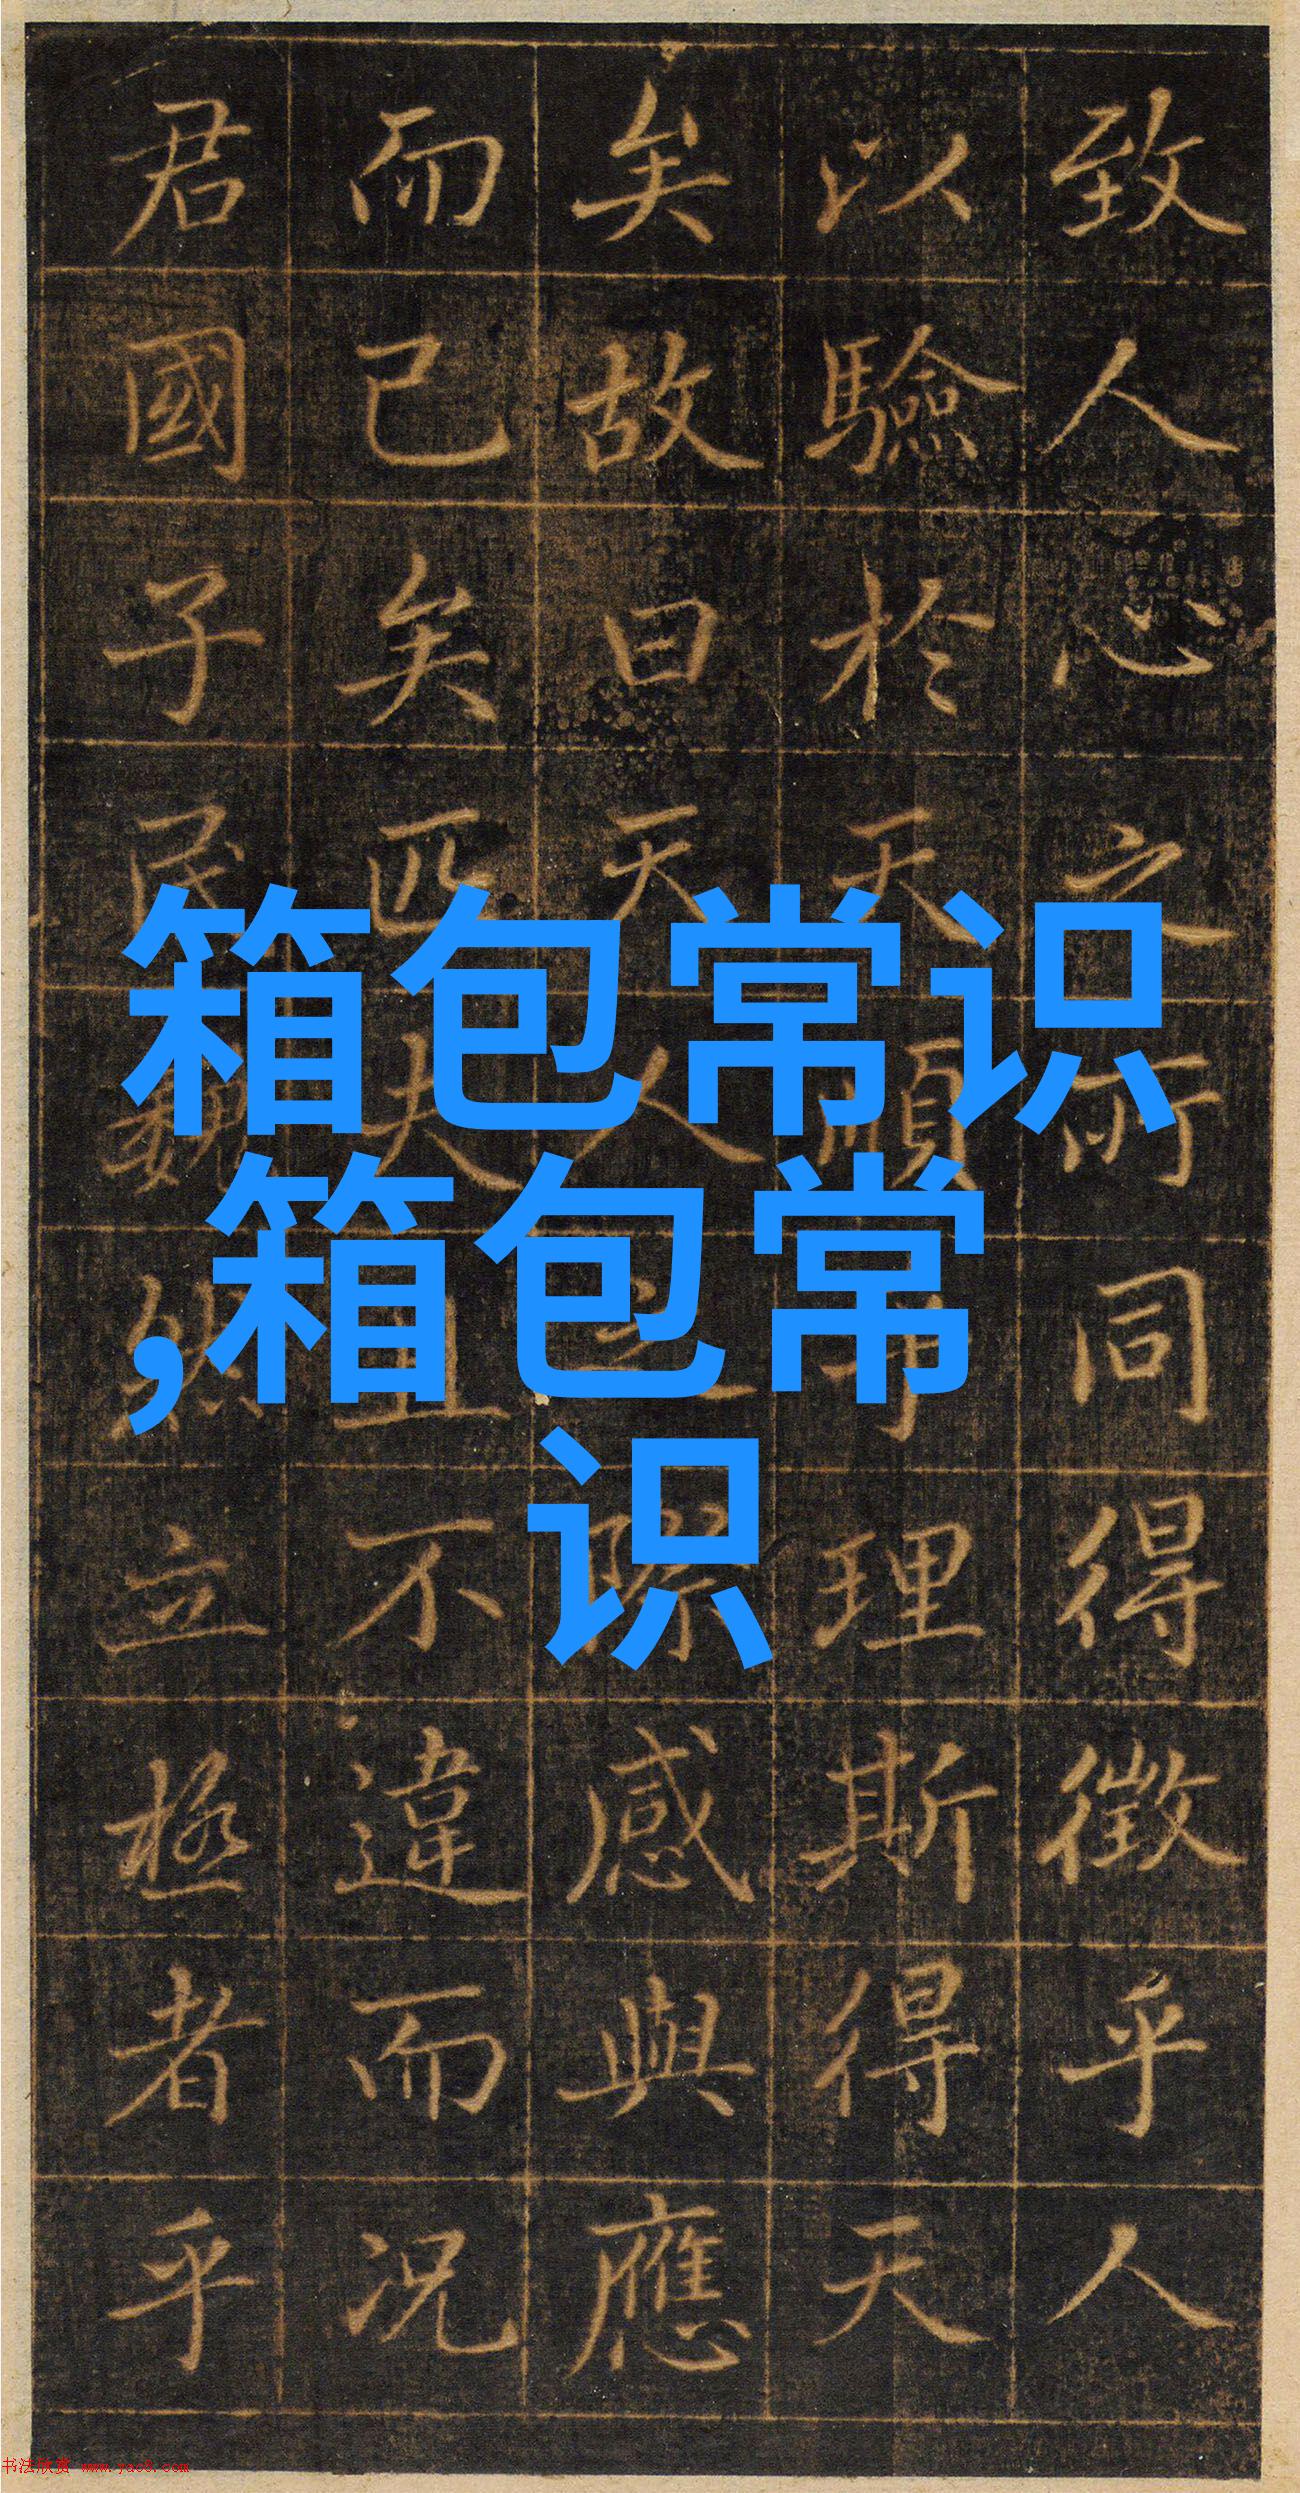 致人心之術同得徵乎人
以驗於天順理斯得天
矣故曰天人之際感與應
而已矣匹夫且不違而況
君國子民巍然立極者乎
箱包常识
,箱包常
识
书法欣赏 www.yac8.com